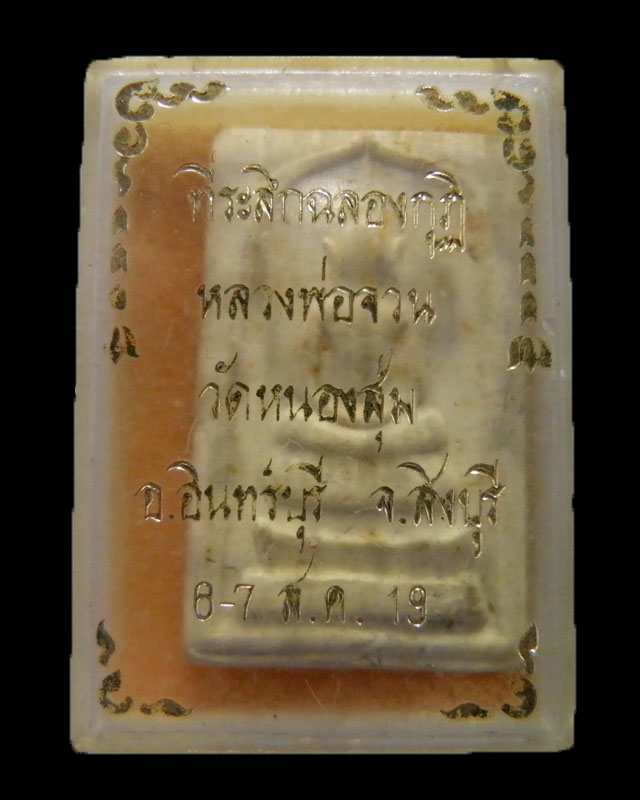 ที่ระลึกฉลองกุฏิ
หลวงพ่อจวน
วัดหนองสุ่ม
อ.อินทร์บุรี จ.สิงบุรี
6-7 ส.ค. 19